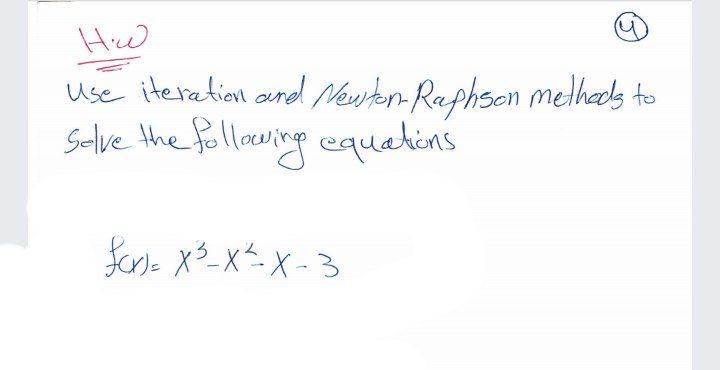 H.w
4
Use iteration and Newton-Raphson methods to
Solve the following equations
f(x)= x³-x²-x-3